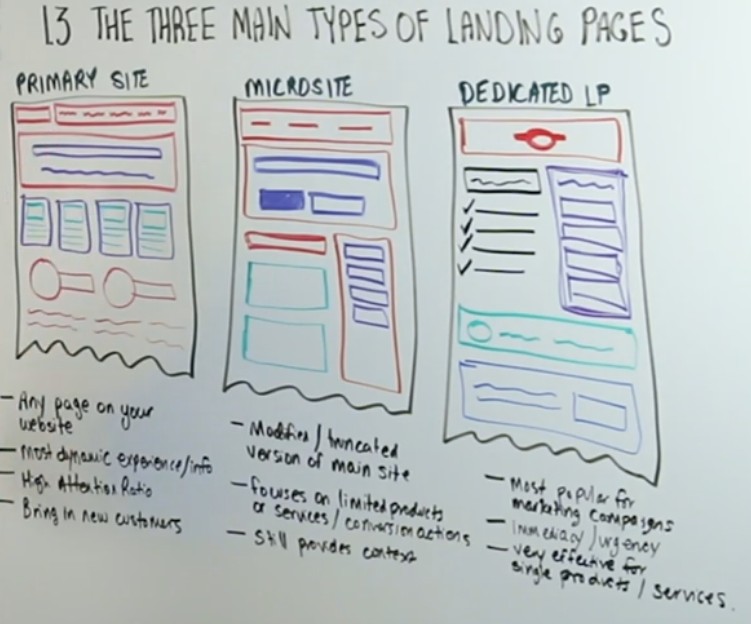 1.3 THE THREE MAIN TYPES OF LANDING PAGES
PRIMARY SITE
- Any page on your
website
- Most dynamic experience/info
- High Attention Ratio
- Bring in new customers
MICROSITE
- Modified / truncated
version of main site
- focuses on limited products
or services / conversion actions
- Still provides context
DEDICATED LP
- Most popular for
marketing campaigns
- immediacy / urgency
- very effective for
single products / services.